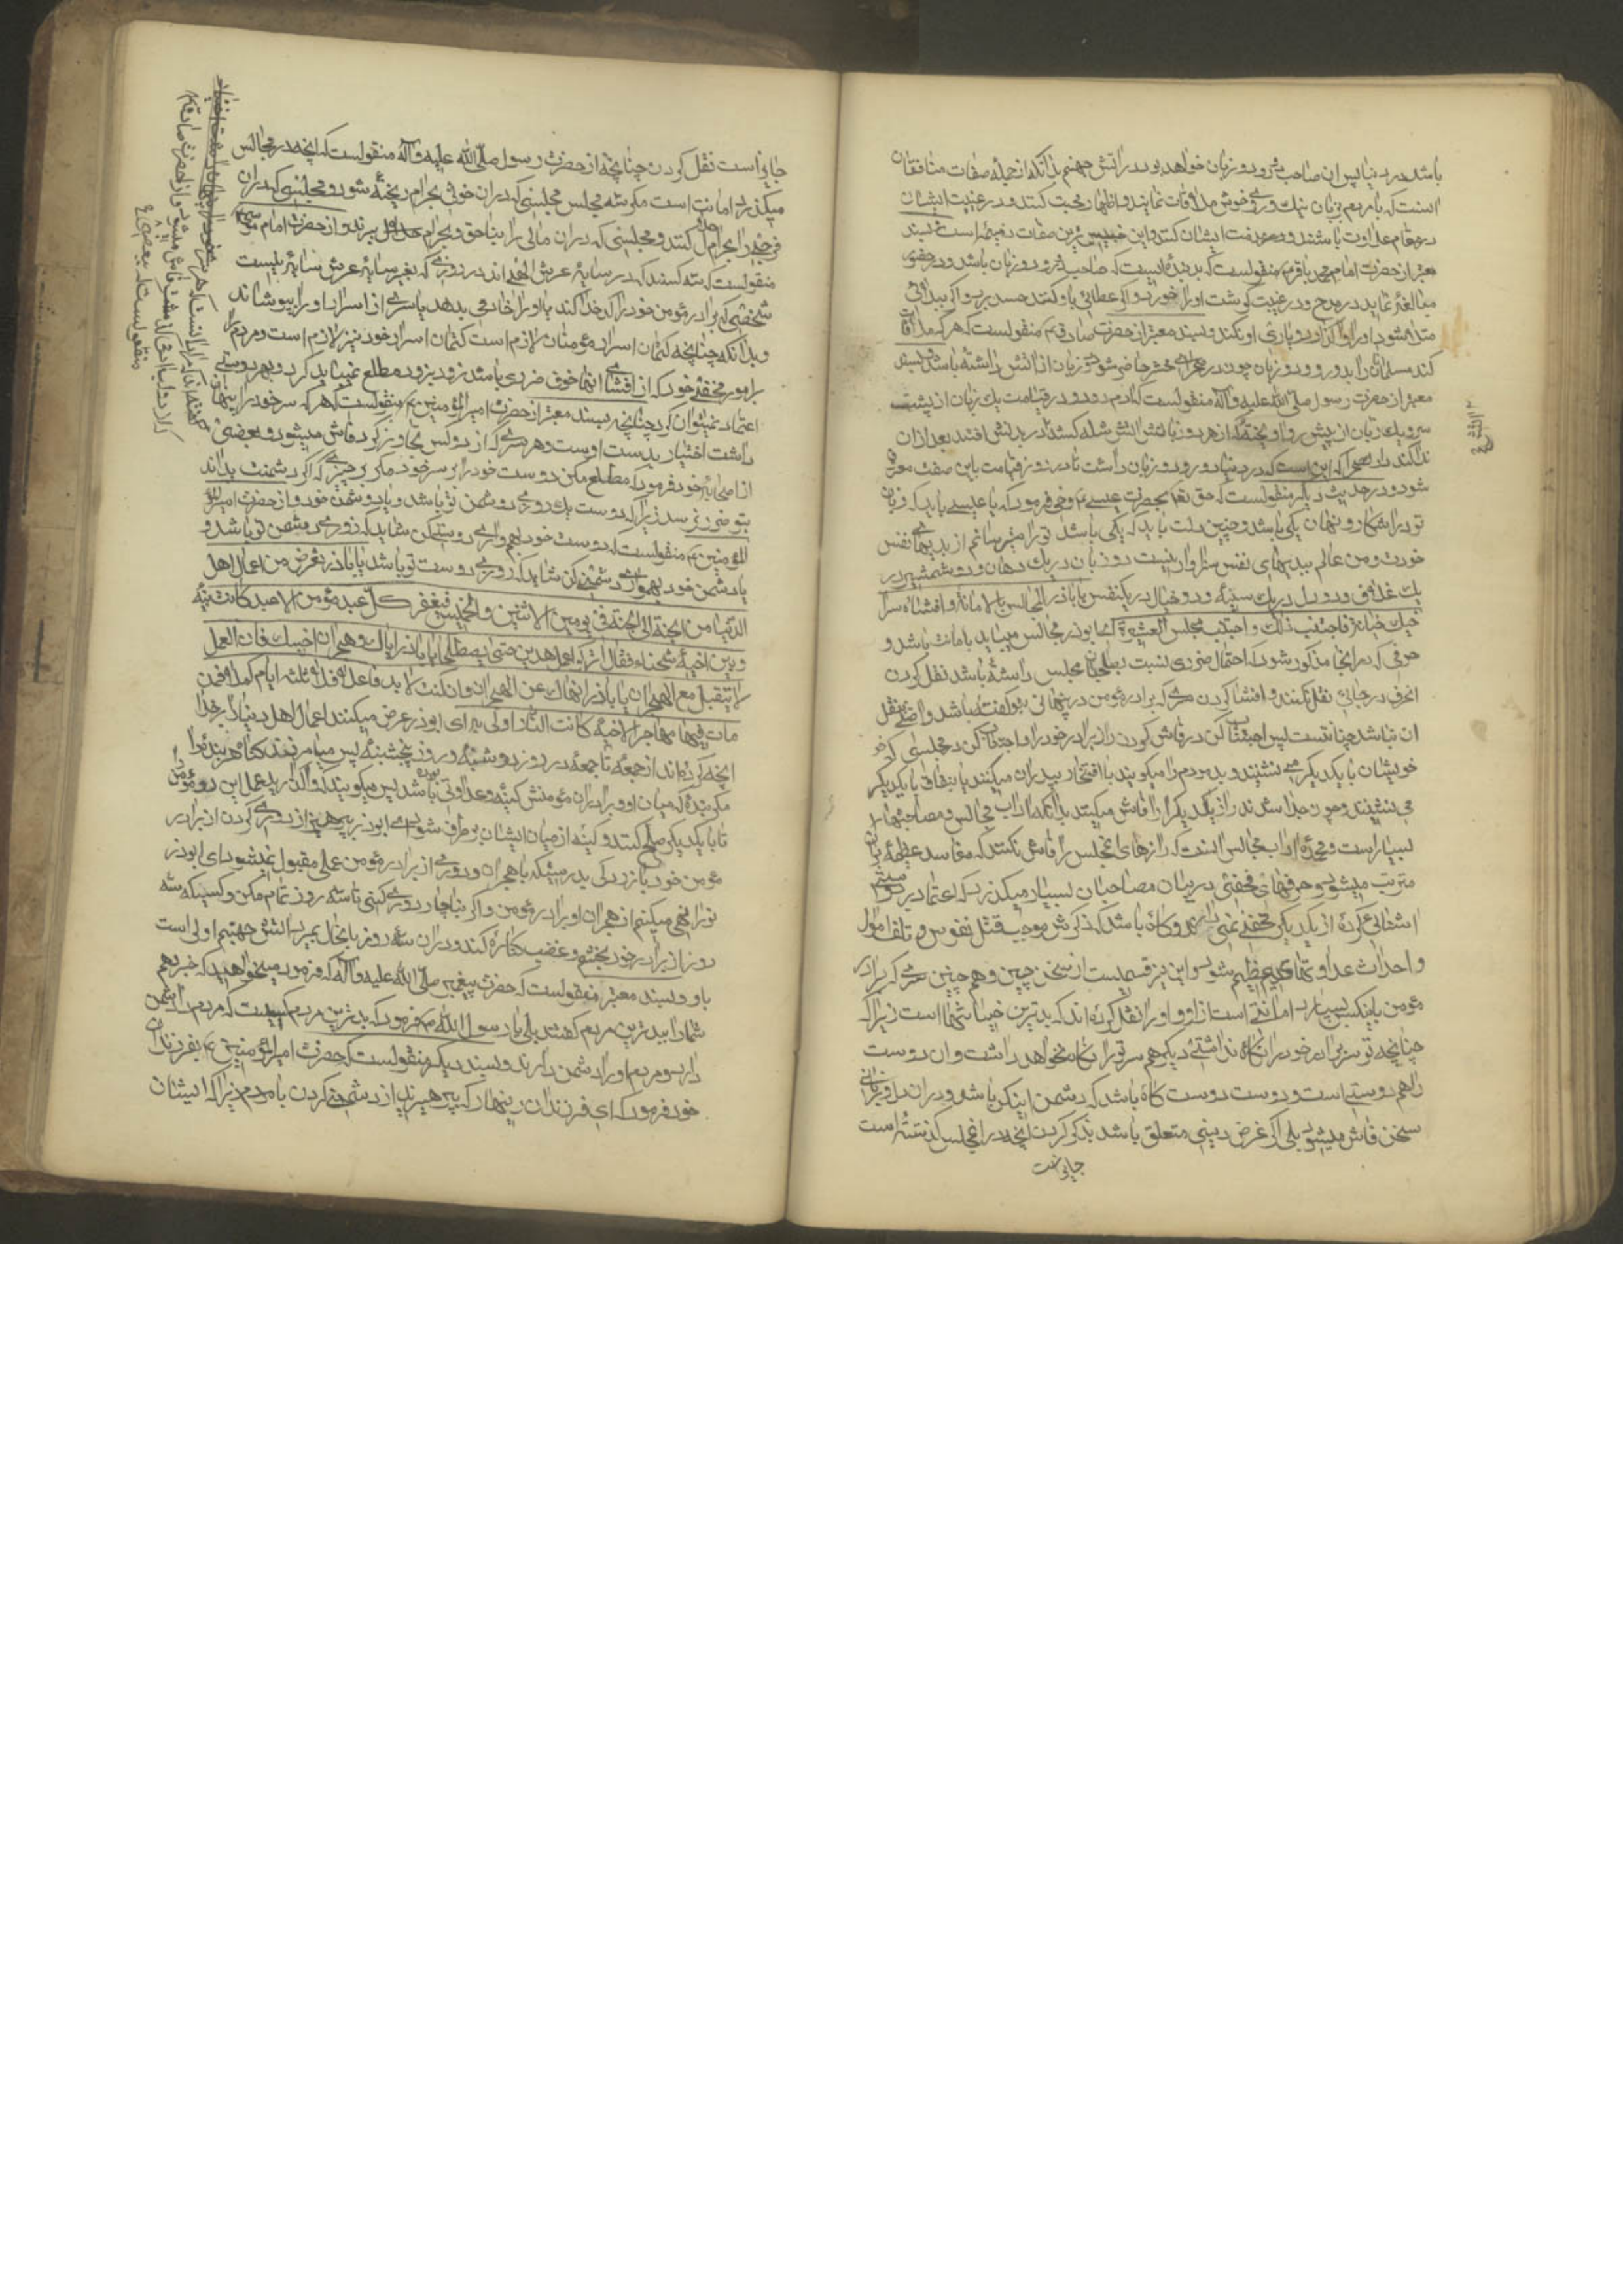 باشد در دنیا پس ان صاحب دو رو و دو زبان خواهد بود در اتش جهنم بدانکه از جمله صفات منافقان
انست که با مردم بزبان نیک و روی خوش ملاقات نمایند و اظهار محبت کنند و در غیبت ایشان
در مقام عداوت باشند و در مذمت ایشان کنند و این خبیث ترین صفات ذمیمه است و بسند
معتبر از حضرت امام محمد باقر ع منقولست که بد بنده ایست که صاحب دو رو و دو زبان باشد و در حضور
مبالغه نماید در مدح و در غیبت کوشت او را خورد و اکر عطائی باو کنند حسد برد و اکر ببلائی
مبتلا شود او را واکذارد و یاری او نکند و بسند معتبر از حضرت صادق ع منقولست که هر که ملاقات
کند مسلمانان را بدو رو و دو زبان چون در صحرای محشر حاضر شود دو زبان از اتش داشته باشد و بسند
معتبر از حضرت رسول صلی الله علیه و آله منقولست که ادم دو رو در قیامت یک زبان از پشت
سر و یک زبان از پیش رو اویخته که از هر دو زبانش اتش شعله کشد تا در بدنش افتد بعد از ان
ندا کنند در محشر که این است که در دنیا دو رو و دو زبان داشت تا در روز قیامت باین صفت معروف
شود و در حدیث دیکر منقولست که حق تعالی بحضرت عیسی ع وحی فرمود که یا عیسی باید که زبان
تو در اشکار و پنهان یکی باشد و چنین دلت باید که یکی باشد تو را میترسانم از بدیهای نفس
خودت و من عالم ببدیهای نفس سزاوار نیست دو زبان در یک دهان و دو شمشیر در
یک غلاف و دو دل در یک سینه و دو خیال در یکنفس یا باذر المجالس بالامانة و افشاء سر
اخیک خیانة فاجتنب ذلک و اجتنب مجلس العشیرة ای ابوذر مجالس میباید بامانت باشد و
حرفی که در انجا مذکور شود که احتمال ضرری نسبت بصاحبان مجلس داشته باشد نقل کردن
انحرف در جائی نقل نکنند و افشا کردن سری که برادر مؤمن در پنهانی بتو کفته باشد و راضی بنقل
ان نباشد خیانتست پس اجتناب کن در فاش کردن راز برادر خود را و اجتناب کن در مجلسی که
خویشان با یکدیکر می نشینند و بد مردم را میکویند یا افتخار بپدران میکنند یا بنفاق با یکدیکر
می نشینند و چون جدا شدند راز یکدیکر را فاش میکنند بدانکه اداب مجالس و مصاحبتها
بسیار است و عمده اداب مجالس انست که رازهای انمجلس را فاش نکنند که مفاسد عظیمه بران
مترتب میشود و حرفهای مخفی درمیان مصاحبان بسیار میکذرد که اعتماد بر دوستی
اشنائی کرده از یکدیکر مخفی نمی دارند و کاه باشد که ذکرش موجب قتل نفوس و تلف اموال
و احداث عداوتهای عظیم شود و این نیز قسمیست از سخن چینی و همچنین سری که برادر
مؤمن باینکس بسپارد امانتی است از او و او را نقل کرده اند که بدترین خیانتها است زیرا که
چنانچه تو سر برادر خود را نکاه نداشتی دیکری هم سر تو را نکاه نخواهد داشت و ان دوست
را هم دوستی است و دوست دوست کاه باشد که دشمن اینکس باشد و در ان دل و زبان
سخن فاش میشود بلی اکر غرض دینی متعلق باشد بذکر کردن انچه در انمجلس کذشته است
جایز است
جایز است نقل کردن چنانچه از حضرت رسول صلی الله علیه و آله منقولست که انچه در مجالس
میکذرد امانت است مکر سه مجلس مجلسی که دران خونی بحرام ریخته شود و مجلسی که دران
فرجی را بحرام حلال کنند و مجلسی که دران مالی را بناحق و بحرام ببرند و از حضرت امام موسی ع
منقولست که سه کسند که در سایه عرش الهی اند در روزی که بغیر سایه عرش سایه نیست
شخصی که برادر مؤمن خود را کدخدا کند یا او را خادمی بدهد یا سری از اسرار او را بپوشاند
و بدانکه چنانچه کتمان اسرار مؤمنان لازم است کتمان اسرار خود نیز لازم است و مردم را
بر امور مخفیه خود که از افشای انها خوف ضرری باشد زود بزود مطلع نمیباید کرد و بهر دوستی
اعتماد نمیتوان کرد چنانچه بسند معتبر از حضرت امیر المؤمنین ع منقولست که هر که سر خود را پنهان
داشت اختیار بدست اوست و هر سری که از دو کس تجاوز کرد فاش میشود و ببعضی
از اصحاب خود فرمود که مطلع مکن دوست خود را بر سر خود مکر بر چیزی که اکر دشمنت بداند
بتو ضرر نرسد زیرا که دوست یک روزی دشمن تو باشد و یا دوشمن خود و از حضرت امیر
المؤمنین ع منقولست که دوست خود بهمواری دوستی کن شاید که روزی دشمن تو باشد و
با دشمن خود بهمواری دشمنی کن شاید که روزی دوست تو باشد یا باذر تعرض من اعمال اهل
الدنیا من الجمعة الی الجمعة فی یومین الاثنین و الخمیس فیغفر کل عبد مؤمن الا عبد کانت بینه
و بین اخیه شحناء فقال اترکوا عمل هذین حتی یصطلحا یا باذر ایاک و هجران اخیک فان العمل
لا یتقبل مع الهجران یا باذر انهاک عن الهجران و ان کنت لا بد فاعلا فلا ثلثة ایام کملا فمن
مات فیها مهاجرا لاخیه کانت النار اولی به ای ابوذر عرض میکنند اعمال اهل دنیا را بر خدا
انچه کرده اند از جمعه تا جمعه در روز دوشنبه و روز پنجشنبه پس میامرزند کناه هر بنده را
مکر بنده که میان او و برادران مؤمنش کینه و عداوتی بوده باشد پس میکویند که واکذارید عمل این دو مؤمن را
تا با یکدیکر صلح کنند و کینه از میان ایشان برطرف شود ای ابوذر بپرهیز از دوری کردن از برادر
مؤمن خود بازردکی بدرستیکه با هجران و دوری از برادر مؤمن عملی مقبول نمیشود ای ابوذر
تورا نهی میکنم از هجران او برادر مؤمن و اکر بناچار دوری کنی تا سه روز تمام مکن و کسیکه سه
روز از برادر خود بخشم و غضب کناره کند و دران سه روز باینحال بمیرد اتش جهنم اولی است
باو و بسند معتبر منقولست که حضرت پیغمبر صلی الله علیه و آله که فرمود میخواهید که خبر دهم
شما را ببدترین مردم کفتند بلی یا رسول الله فرمود که بدترین مردم کسیست که مردم را دشمن
دارد و مردم او را دشمن دارند و بسند دیکر منقولست که حضرت امیر المؤمنین ع بفرزندان
خود فرمود که ای فرزندان زینهار که بپرهیزید از دشمنی کردن با مردم زیرا که ایشان